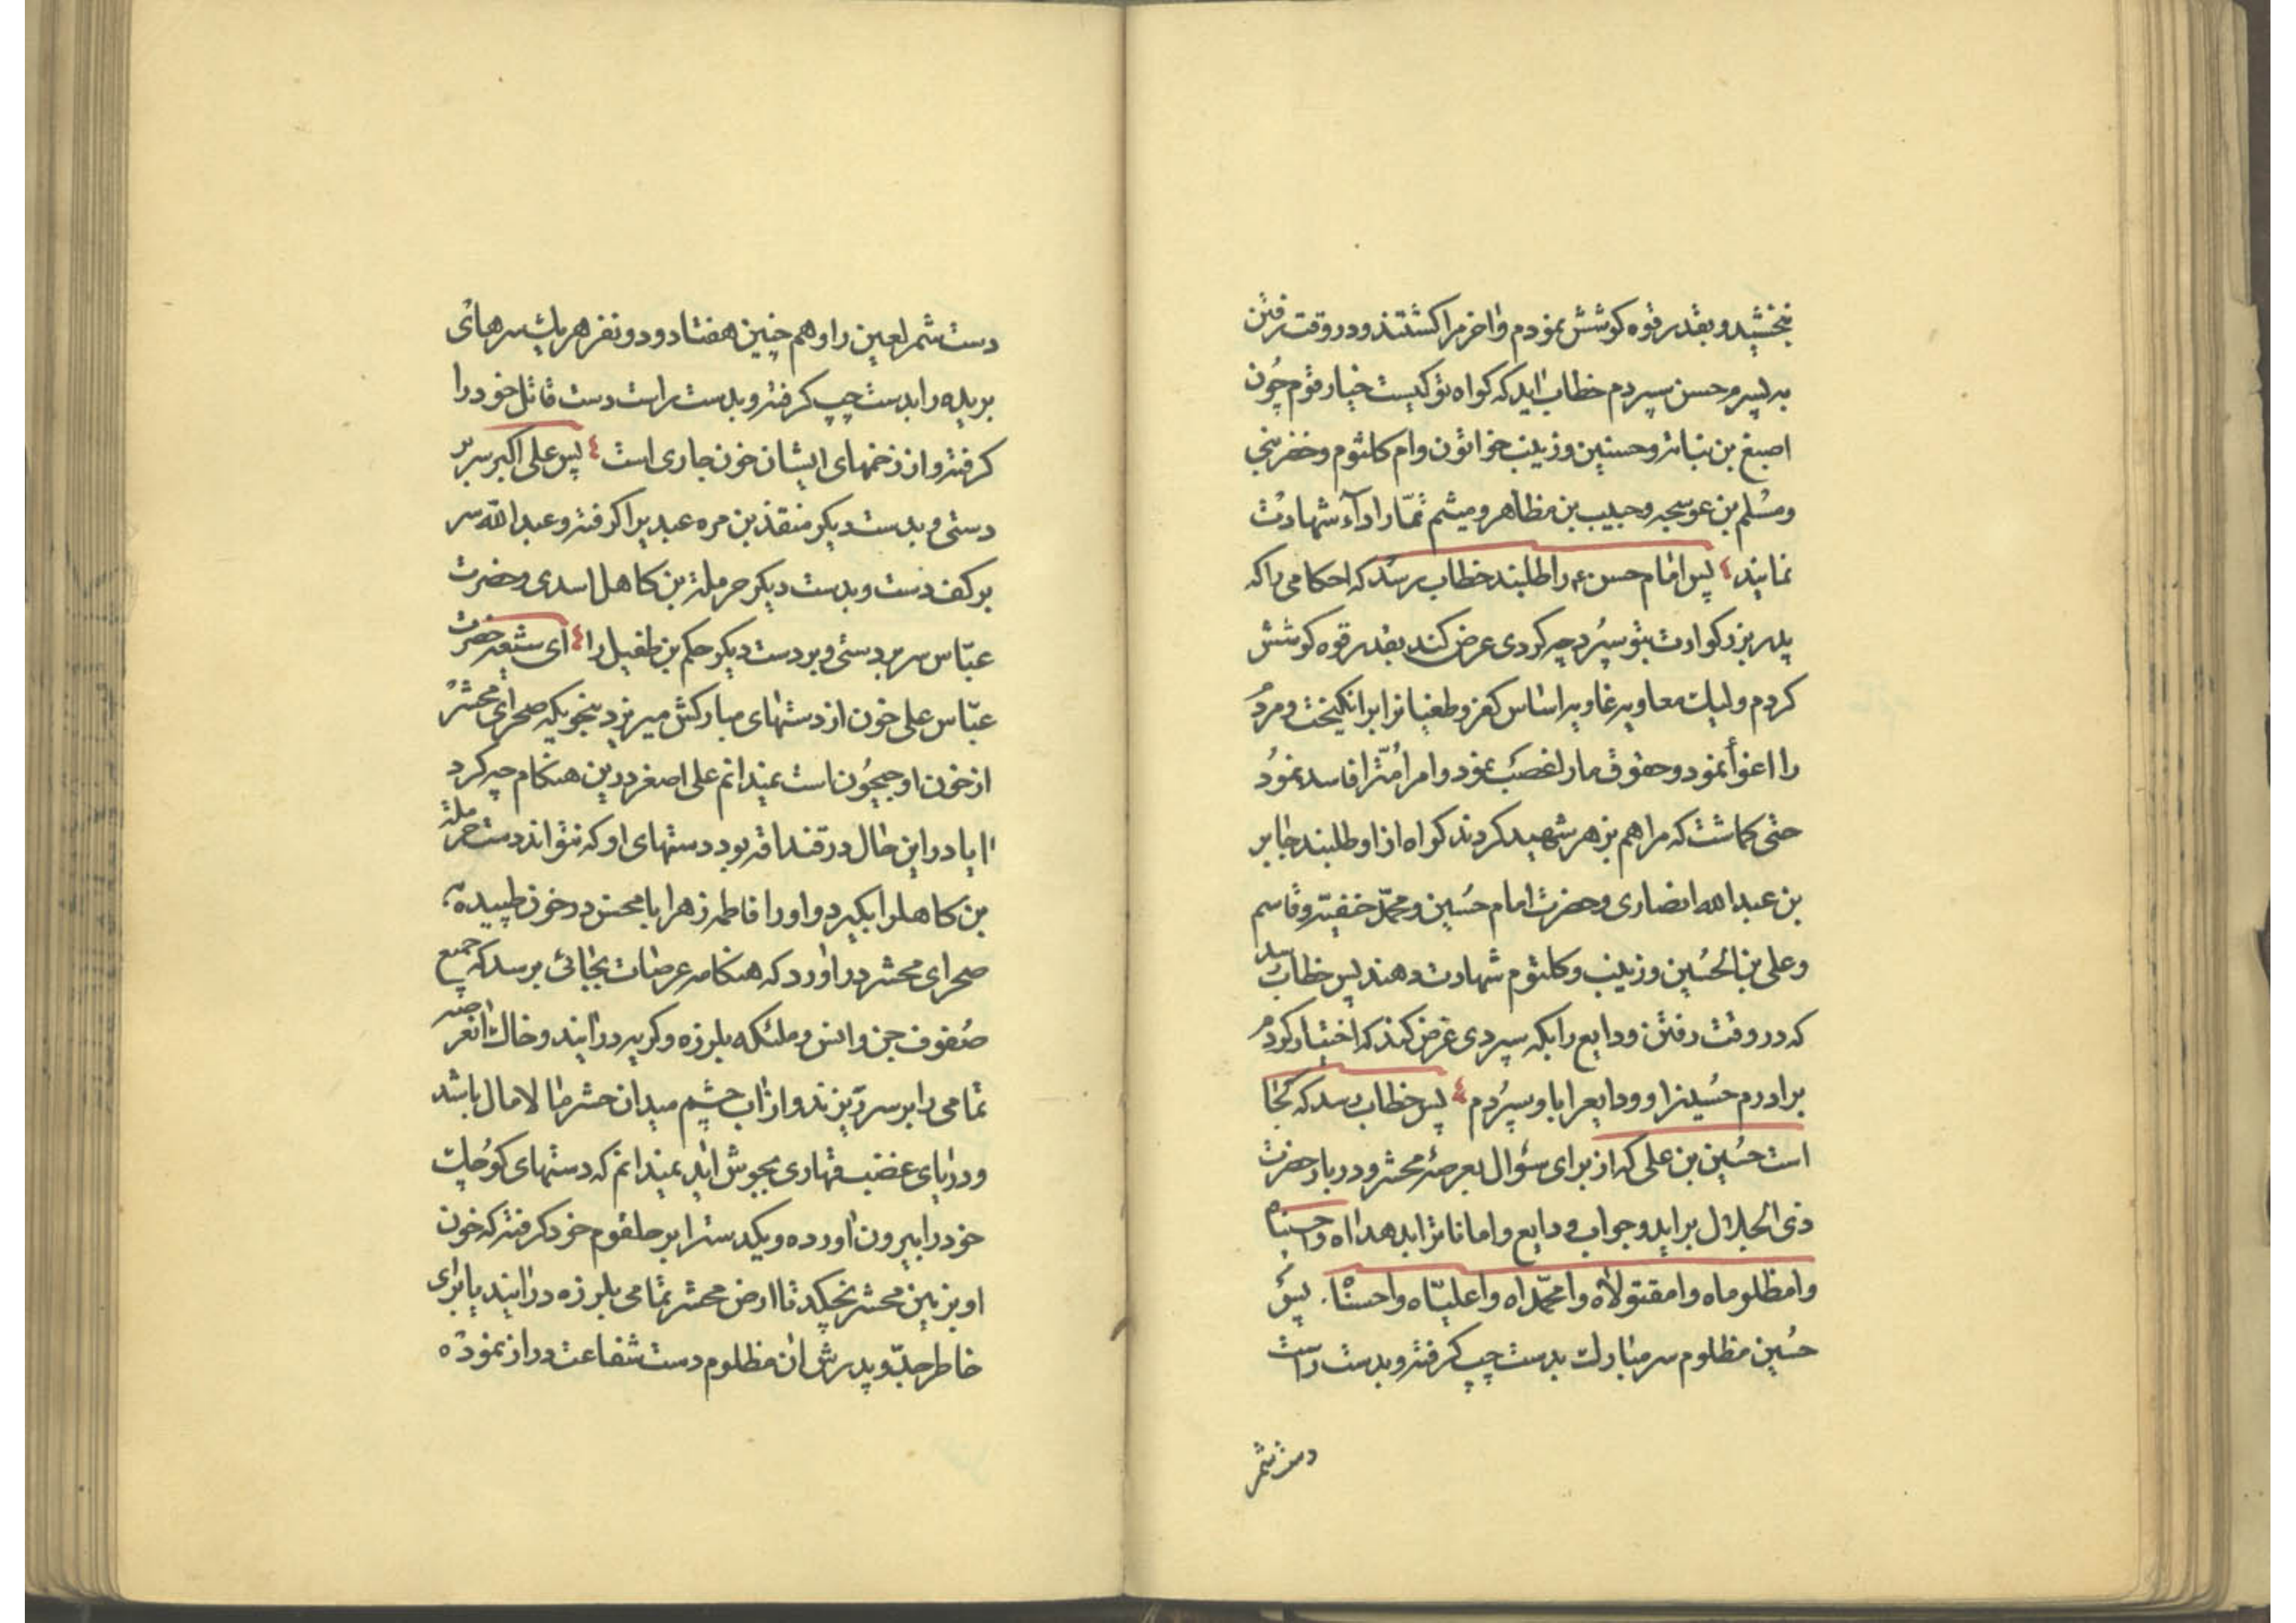 بخشید و بقدر قوه کوشش نمودم واخر مرا کشتند و در وقت رفتن
به پسرم حسن سپردم خطاب اید که کواه تو کیست خیار قوم چون
اصبغ بن نباته و حسنین و زینب خواتون وام کلثوم و خضر نبی
ومسلم بن عوسجه و حبیب بن مظاهر و میثم تمار اداء شهادت
نمایند پس امام حسن ع را طلبند خطاب رسد که احکامی را که
پدر بزرکوارت بتو سپرد چه کردی عرض کند بقدر قوه کوشش
کردم ولیک معاویه غاویه اساس کفر و طغیانرا برانکیخت و مردم
را اغوا نمود و حقوق مارا غصب نمود وامر امترا فاسد نمود
حتی کماشت که مرا هم بزهر شهید کردند کواه از او طلبند جابر
بن عبدالله انصاری و حضرت امام حسین و محمد حنفیه و قاسم
وعلی بن الحسین و زینب و کلثوم شهادت دهند پس خطاب رسد
که در وقت رفتن ودایع را بکه سپردی عرض کند که اختیار کردم
برادرم حسینرا و ودایعرا باو سپردم پس خطاب رسد که کجا
است حسین بن علی که از برای سؤال بعرصه محشر و دربار حضرت
ذی الجلال براید و جواب ودایع و اماناترا بدهد اه واحسیناه
وامظلوماه وامقتولاه وامحمداه واعلیاه واحسنا. پس
حسین مظلوم سر مبارک بدست چپ کرفته و بدست راست
دست شمر
دست شمر لعین را و هم چنین هفتاد و دو نفر هر یک سرهای
بریده را بدست چپ کرفته و بدست راست دست قاتل خود را
کرفته و از زخمهای ایشان خون جاری است پس علی اکبر سر بر
دستی و بدست دیکر منقذ بن مره عبدیرا کرفته و عبدالله سر
بر کف دست و بدست دیکر حرملة بن کاهل اسدی و حضرت
عباس سر بر دستی و بر دست دیکر حکیم بن طفیل را ای شیعه حضرت
عباس علی خون از دستهای مبارکش میریزد بنحویکه صحرای محشر
از خون او جیحون است نمیدانم علی اصغر در ین هنکام چه کرد
ایا در این حال در قنداقه بود دستهای او که نتواند دست حرملة
بن کاهلرا بکیرد و او را فاطمه زهرا با محسن در خون طپیده
صحرای محشر دراورد که هنکامه عرصات بجائی برسد که جمیع
صفوف جن وانس و ملئکه بلرزه و کریه درایند و خاک انعرصه
تمامی را بر سر ریزند و از اب چشم میدان حشر مالامال باشد
و دریای غضب قهاری بجوش اید نمیدانم که دستهای کوچک
خود را بیرون اورده و یکدسترا بر حلقوم خود کرفته که خون
او بزمین محشر نچکد تا ارض محشر تمامی بلرزه درایند یا برای
خاطر جد و پدرش ان مظلوم دست شفاعت دراز نموده